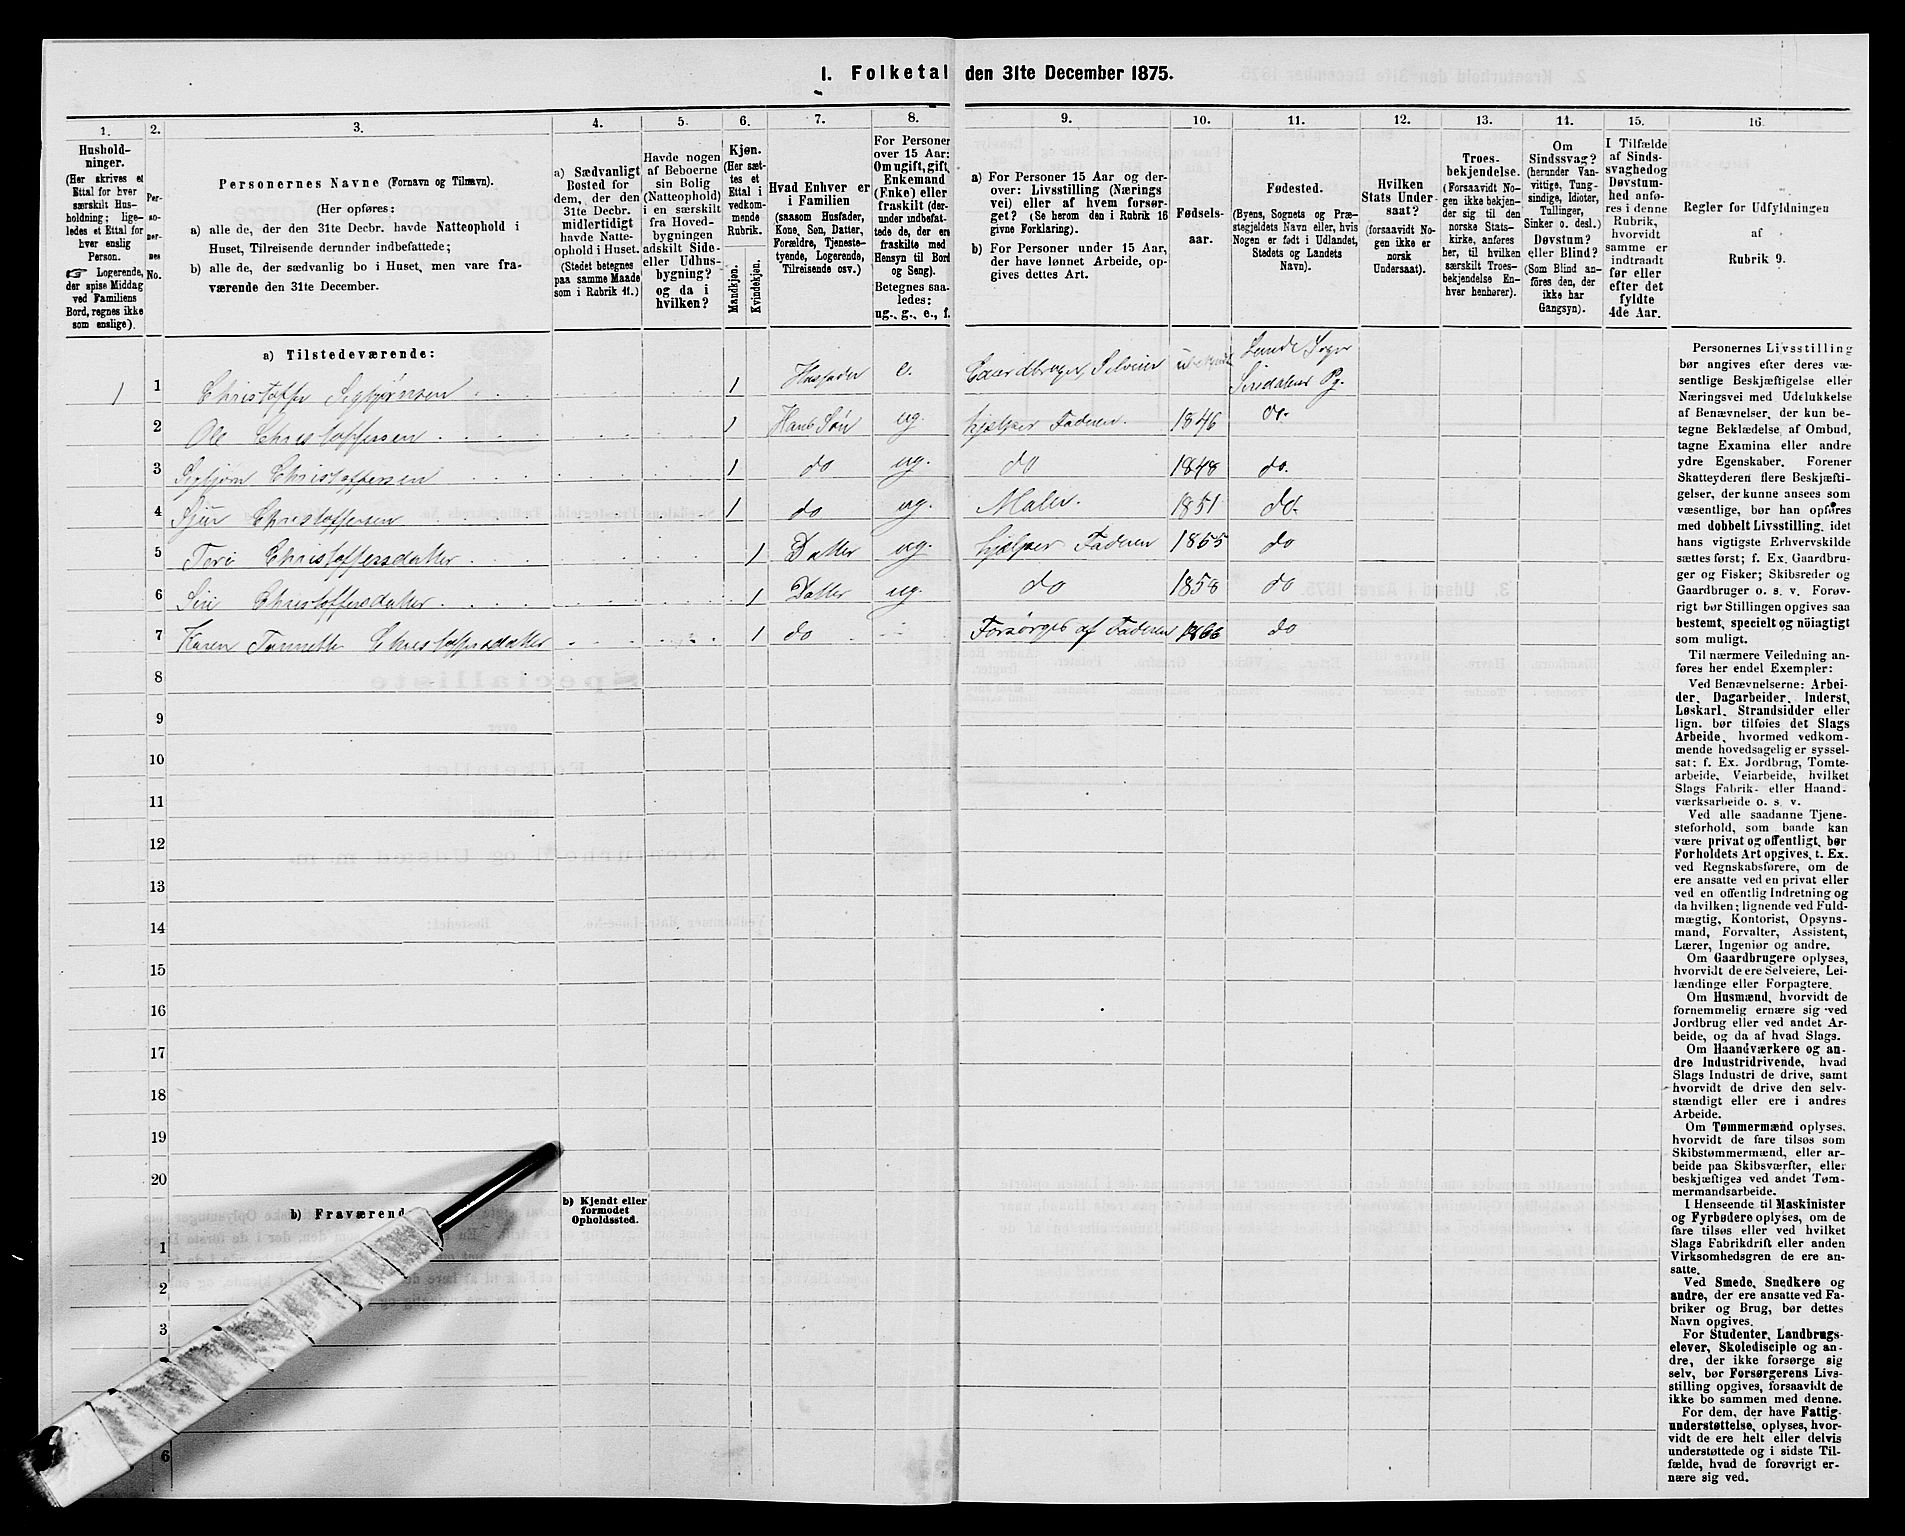 1. Folketal den 31te December 1875.
1.
Hushold-
ninger.
(Her skrives et
Ettal for hver
særskilt Hus-
holdning; lige-
ledes et Ettal for
hver enslig
Person.
☞ Logerende,
der spise Middag
ved Familiens
Bord, regnes ikke
som enslige).
2.
Per-
so-
ner-
nes
No.
3.
Personernes Navne (Fornavn og Tilnavn).
(Her opføres:
a) alle de, der den 31te Decbr. havde Natteophold i
Huset, Tilreisende derunder indbefattede;
b) alle de, der sædvanlig bo i Huset, men vare fra-
værende den 31te December.
4.
a) Sædvanligt
Bosted for
dem, der den
31te Decbr.
midlertidigt
havde Natte-
ophold i Huset.
(Stedet betegnes
paa samme Maade
som i Rubrik 11.)
5.
Havde nogen
af Beboerne
sin Bolig
(Natteophold)
i en særskilt
fra Hoved-
bygningen
adskilt Side-
eller Udhus-
bygning?
og da i
hvilken?
6.
Kjøn.
(Her sæt-
tes et
Ettal i
vedkom-
mende
Rubrik.
Mandkjøn.
Kvindekjøn.
7.
Hvad Enhver er
i Familien
(saasom Husfader,
Kone, Søn, Datter,
Forældre, Tjeneste-
tyende, Logerende,
Tilreisende osv.)
8.
For Personer
over 15 Aar:
Om ugift, gift,
Enkemand
(Enke) eller
fraskilt (der-
under indbefat-
tede de, der ere
fraskilte med
Hensyn til Bord
og Seng).
Betegnes saa-
ledes:
ug., g., e., f.
9.
a) For Personer 15 Aar og der-
over: Livsstilling (Nærings
vei) eller af hvem forsør-
get? (Se herom den i Rubrik 16
givne Forklaring).
b) For Personer under 15 Aar,
der have lønnet Arbeide, op-
gives dettes Art.
10.
Fødsels-
aar.
11.
Fødested.
(Byens, Sognets og Præ-
stegjeldets Navn eller, hvis
Nogen er født i Udlandet,
Stedets og Landets
Navn).
12.
Hvilken
Stats Under-
saat?
(forsaavidt No-
gen ikke er
norsk
Undersaat).
13.
Troes-
bekjendelse.
(Forsaavidt No-
gen ikke bekjen-
der sig til den
norske Stats-
kirke, anføres
her, til hvilken
særskilt Troes-
bekjendelse En-
hver henhører).
14.
Om
Sindssvag?
(herunder Van-
vittige, Tung-
sindige, Idioter,
Tullinger,
Sinker o. desl.).
Døvstum?
eller Blind?
(Som Blind an-
føres den, der
ikke har
Gangsyn).
15.
I Tilfælde
af Sinds-
svaghed og
Døvstum-
hed anfø-
res i denne
Rubrik,
hvorvidt
samme er
indtraadt
før eller
efter det
fyldte
4de Aar.
16.
Regler for Udfyldningen
af
Rubrik 9.
a) Tilstedeværende:
1 1 Christoffer Sigbjørnsen 1 Husfader e. Gaardbruger, Selveier Lunde Sogn
Siredalens Pg.
2 Ole Christoffersen 1 Hans Søn ug. hjælper Faderen. 1846 do.
3 Sigbjørn Christoffersen 1 do ug. do 1848 do.
4 Sjur Christoffersen 1 do ug. Maler. 1851 do.
5 Teri Christoffersdatter 1 Datter ug. hjælper Faderen 1855 do
6 Siri Christoffersdatter 1 Datter ug. do 1858 do
7 Karen Tonnette Christoffersdatter 1 do Forsørges af Faderen 1866 do
8
9
10
11
12
13
14
15
16
17
18
19
20
b) Fraværend
b) Kjendt eller
formodet
Opholdssted.
1
2
3
6
Personernes Livsstilling
bør angives efter deres væ-
sentlige Beskjæftigelse eller
Næringsvei med Udelukkelse
af Benævnelser, der kun be-
tegne Beklædelse af Ombud,
tagne Examina eller andre
ydre Egenskaber. Forener
Skatteyderen flere Beskjæfti-
gelser, der kunne ansees som
væsentlige, bør han opføres
med dobbelt Livsstilling, idet
hans vigtigste Erhvervskilde
sættes først; f. Ex. Gaardbru-
ger og Fisker; Skibsreder og
Gaardbruger o. s. v. Forøv-
rigt bør Stillingen opgives saa
bestemt, specielt og nöiagtigt
som muligt.
Til nærmere Veiledning an-
føres her endel Exempler:
Ved Benævnelserne: Arbei-
der, Dagarbeider, Inderst,
Løskarl, Strandsidder eller
lign. bør tilføies det Slags
Arbeide, hvormed vedkom-
mende hovedsagelig er syssel-
sat; f. Ex. Jordbrug, Tomte-
arbeide, Veiarbeide, hvilket
Slags Fabrik- eller Haand-
værksarbeide o. s. v.
Ved alle saadanne Tjene-
steforhold, som baade kan
være privat og offentligt, bør
Forholdets Art opgives, t. Ex.
ved Regnskabsførere, om de
ere ansatte ved en privat eller
ved en offentlig Indretning og
da hvilken; lignende ved Fuld-
mægtig, Kontorist, Opsyns-
mand, Forvalter, Assistent,
Lærer, Ingeniør og andre.
Om Gaardbrugere oplyses,
hvorvidt de ere Selveiere, Lei-
lændinge eller Forpagtere.
Om Husmænd, hvorvidt de
fornemmelig ernære sig ved
Jordbrug eller ved andet Ar-
beide, og da af hvad Slags.
Om Haandværkere og an-
dre Industridrivende, hvad
Slags Industri de drive, samt
hvorvidt de drive den selv-
stændigt eller ere i andres
Arbeide.
Om Tømmermænd oplyses,
hvorvidt de fare tilsøs som
Skibstømmermænd, eller ar-
beide paa Skibsværfter, eller
beskjæftiges ved andet Tøm-
mermandsarbeide.
I Henseende til Maskinister
og Fyrbødere oplyses, om de
fare tilsøs eller ved hvilket
Slags Fabrikdrift eller anden
Virksomhedsgren de ere an-
satte.
Ved Smede, Snedkere og
andre, der ere ansatte ved Fa-
briker og Brug, bør dettes
Navn opgives.
For Studenter, Landbrugs-
elever, Skoledisciple og an-
dre, der ikke forsørge sig
selv, bør Forsørgerens Livs-
stilling opgives, forsaavidt de
ikke bo sammen med denne.
For dem, der have Fattig-
understøttelse, oplyses, hvor-
vidt de ere helt eller delvis
understøttede og i sidste Til-
fælde, hvad de forøvrigt er-
nære sig ved.